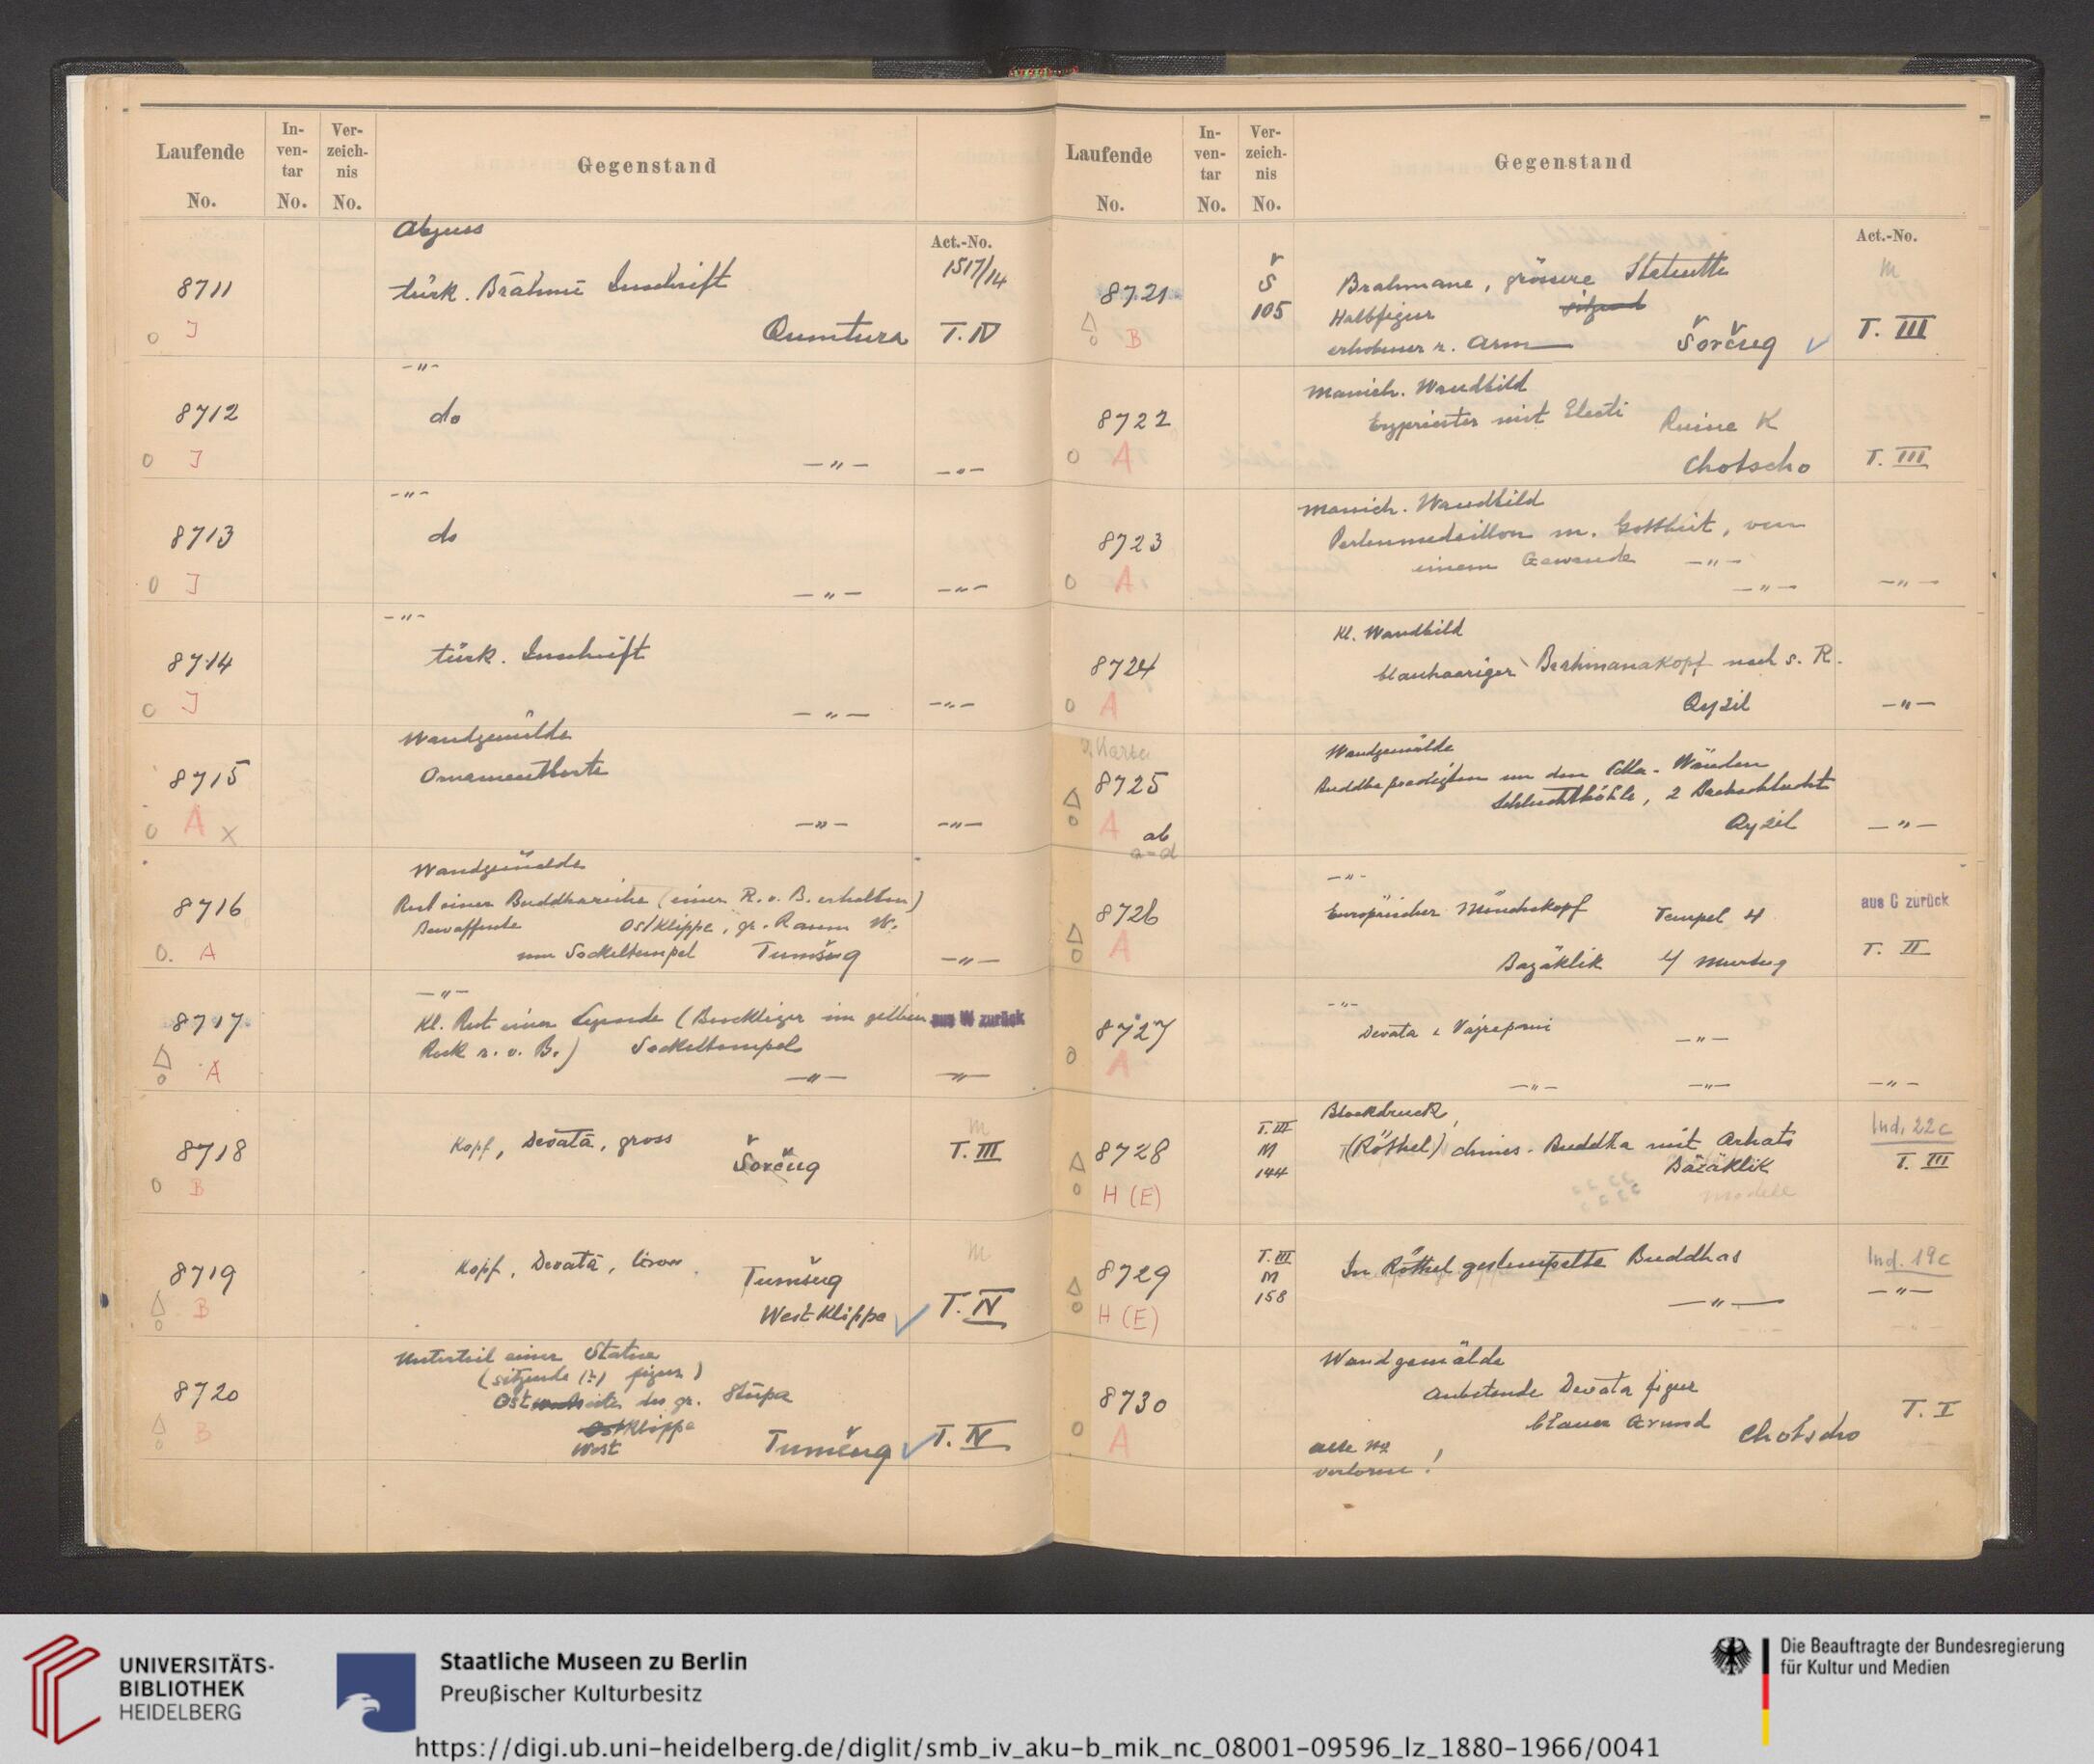 Laufende
No.
In-
ven-
tar
No.
Ver-
zeich-
nis
No.
Gegenstand
Act.-No.
1517/14
Abguss
8711
türk. Brāhmī Inschrift
J
Qumtura T. IV
-"-
8712
do
J
-"- -"-
-"-
8713
do
J
-"- -"-
-"-
8714
türk. Inschrift
J
-"- -"-
Wandgemälde
8715
Ornamentborte
A x
-"- -"-
Wandgemälde
8716
Rest einer Buddhareihe (einer R. v. B. erhalten)
Ostklippe, gr. Raum W.
A
vom Sockeltempel Tumšug -"-
-"-
8717
Kl. Rest einer Legende ( im gelben aus W zurück
Rock r. v. B.) Sockeltempel
A
-"- -"-
8718
Kopf, Devatā, gross
Šorčug
M
T. III
B
8719
Kopf, Devatā,
Tumšug
M
B
West Klippe T. IV
Unterteil einer Statue
(sitzende (?) figur)
8720
Ostseite des gr. Stūpa
B
Ostklippe
West
Tumčug T. IV
Laufende
No.
In-
ven-
tar
No.
Ver-
zeich-
nis
No.
Gegenstand
Act.-No.
8721
S
105
Brahmane, grössere Statuette
M
Halbfigur sitzend
B
erhobener r. Arm
Šorčug T. III
Manich. Wandbild
8722
Erzpriester mit Electi Ruine K
A
Chotscho T. III
Manich. Wandbild
8723
Perlenmedaillon m. Gottheit, von
einem Gewande -"-
A
-"- -"-
Kl. Wandbild
8724
blauhaariger Brahmanakopf nach s. R.
A
Qyzil -"-
Wandgemälde
8725
Buddhapredigten von den Cella-Wänden
Schluchthöhle, 2 Bachschlucht
A ab
a-d
Qyzil -"-
-"-
8726
Europäischer Mönchskopf Tempel 4
aus C zurück
A
Bazäklik b/ Murtug T. II
-"-
8727
Devata & Vajrapani -"-
A
-"- -"- -"-
Blockdruck,
8728
T. III
M
144
(Röthel) chines. Buddha mit Arhats
Bäzäklik
Ind. 22c
T. III
H (E)
Modell
8729
T. III
M
158
In Röthel gestempelte Buddhas
Ind. 19c
H (E)
-"- -"-
Wandgemälde
8730
Anbetende Devata figur
blauer Grund Chotscho T. I
A
alte No
verloren!
UNIVERSITÄTS-
BIBLIOTHEK
HEIDELBERG
Staatliche Museen zu Berlin
Preußischer Kulturbesitz
Die Beauftragte der Bundesregierung
für Kultur und Medien
https://digi.ub.uni-heidelberg.de/diglit/smb_iv_aku-b_mik_nc_08001-09596_lz_1880-1966/0041